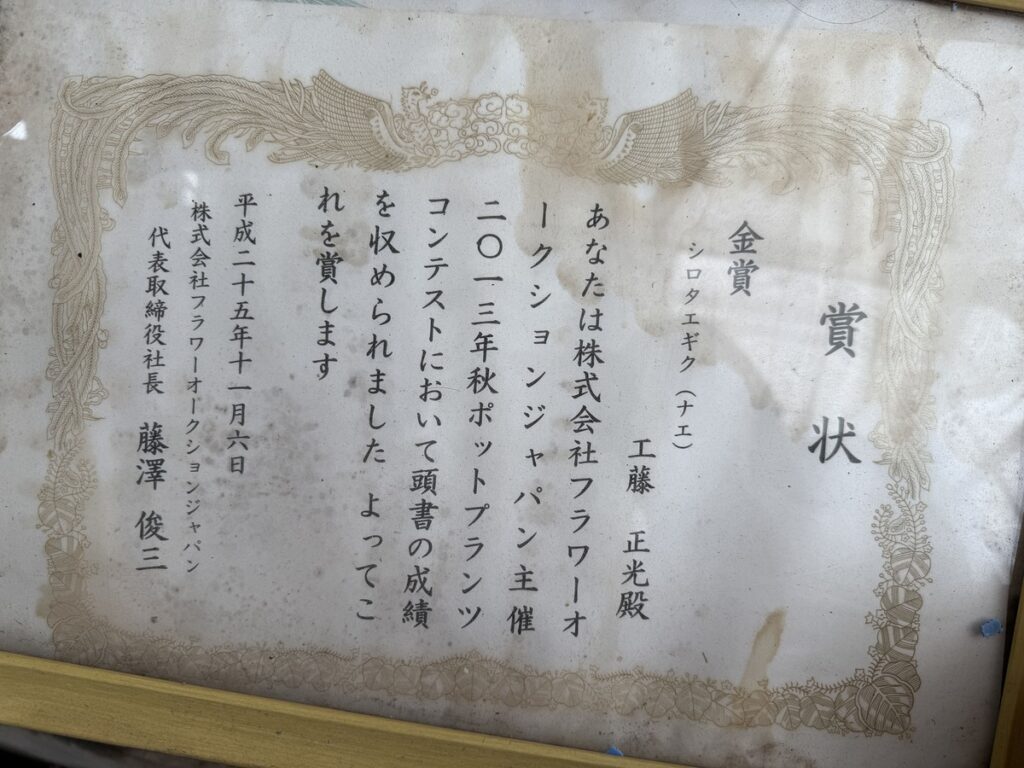 賞状
金賞
シロタエギク（ナエ）
工藤 正光殿
あなたは株式会社フラワーオ
ークションジャパン主催
二〇一三年秋ポットプランツ
コンテストにおいて頭書の成績
を収められました よってこ
れを賞します
平成二十五年十一月六日
株式会社フラワーオークションジャパン
代表取締役社長 藤澤 俊三